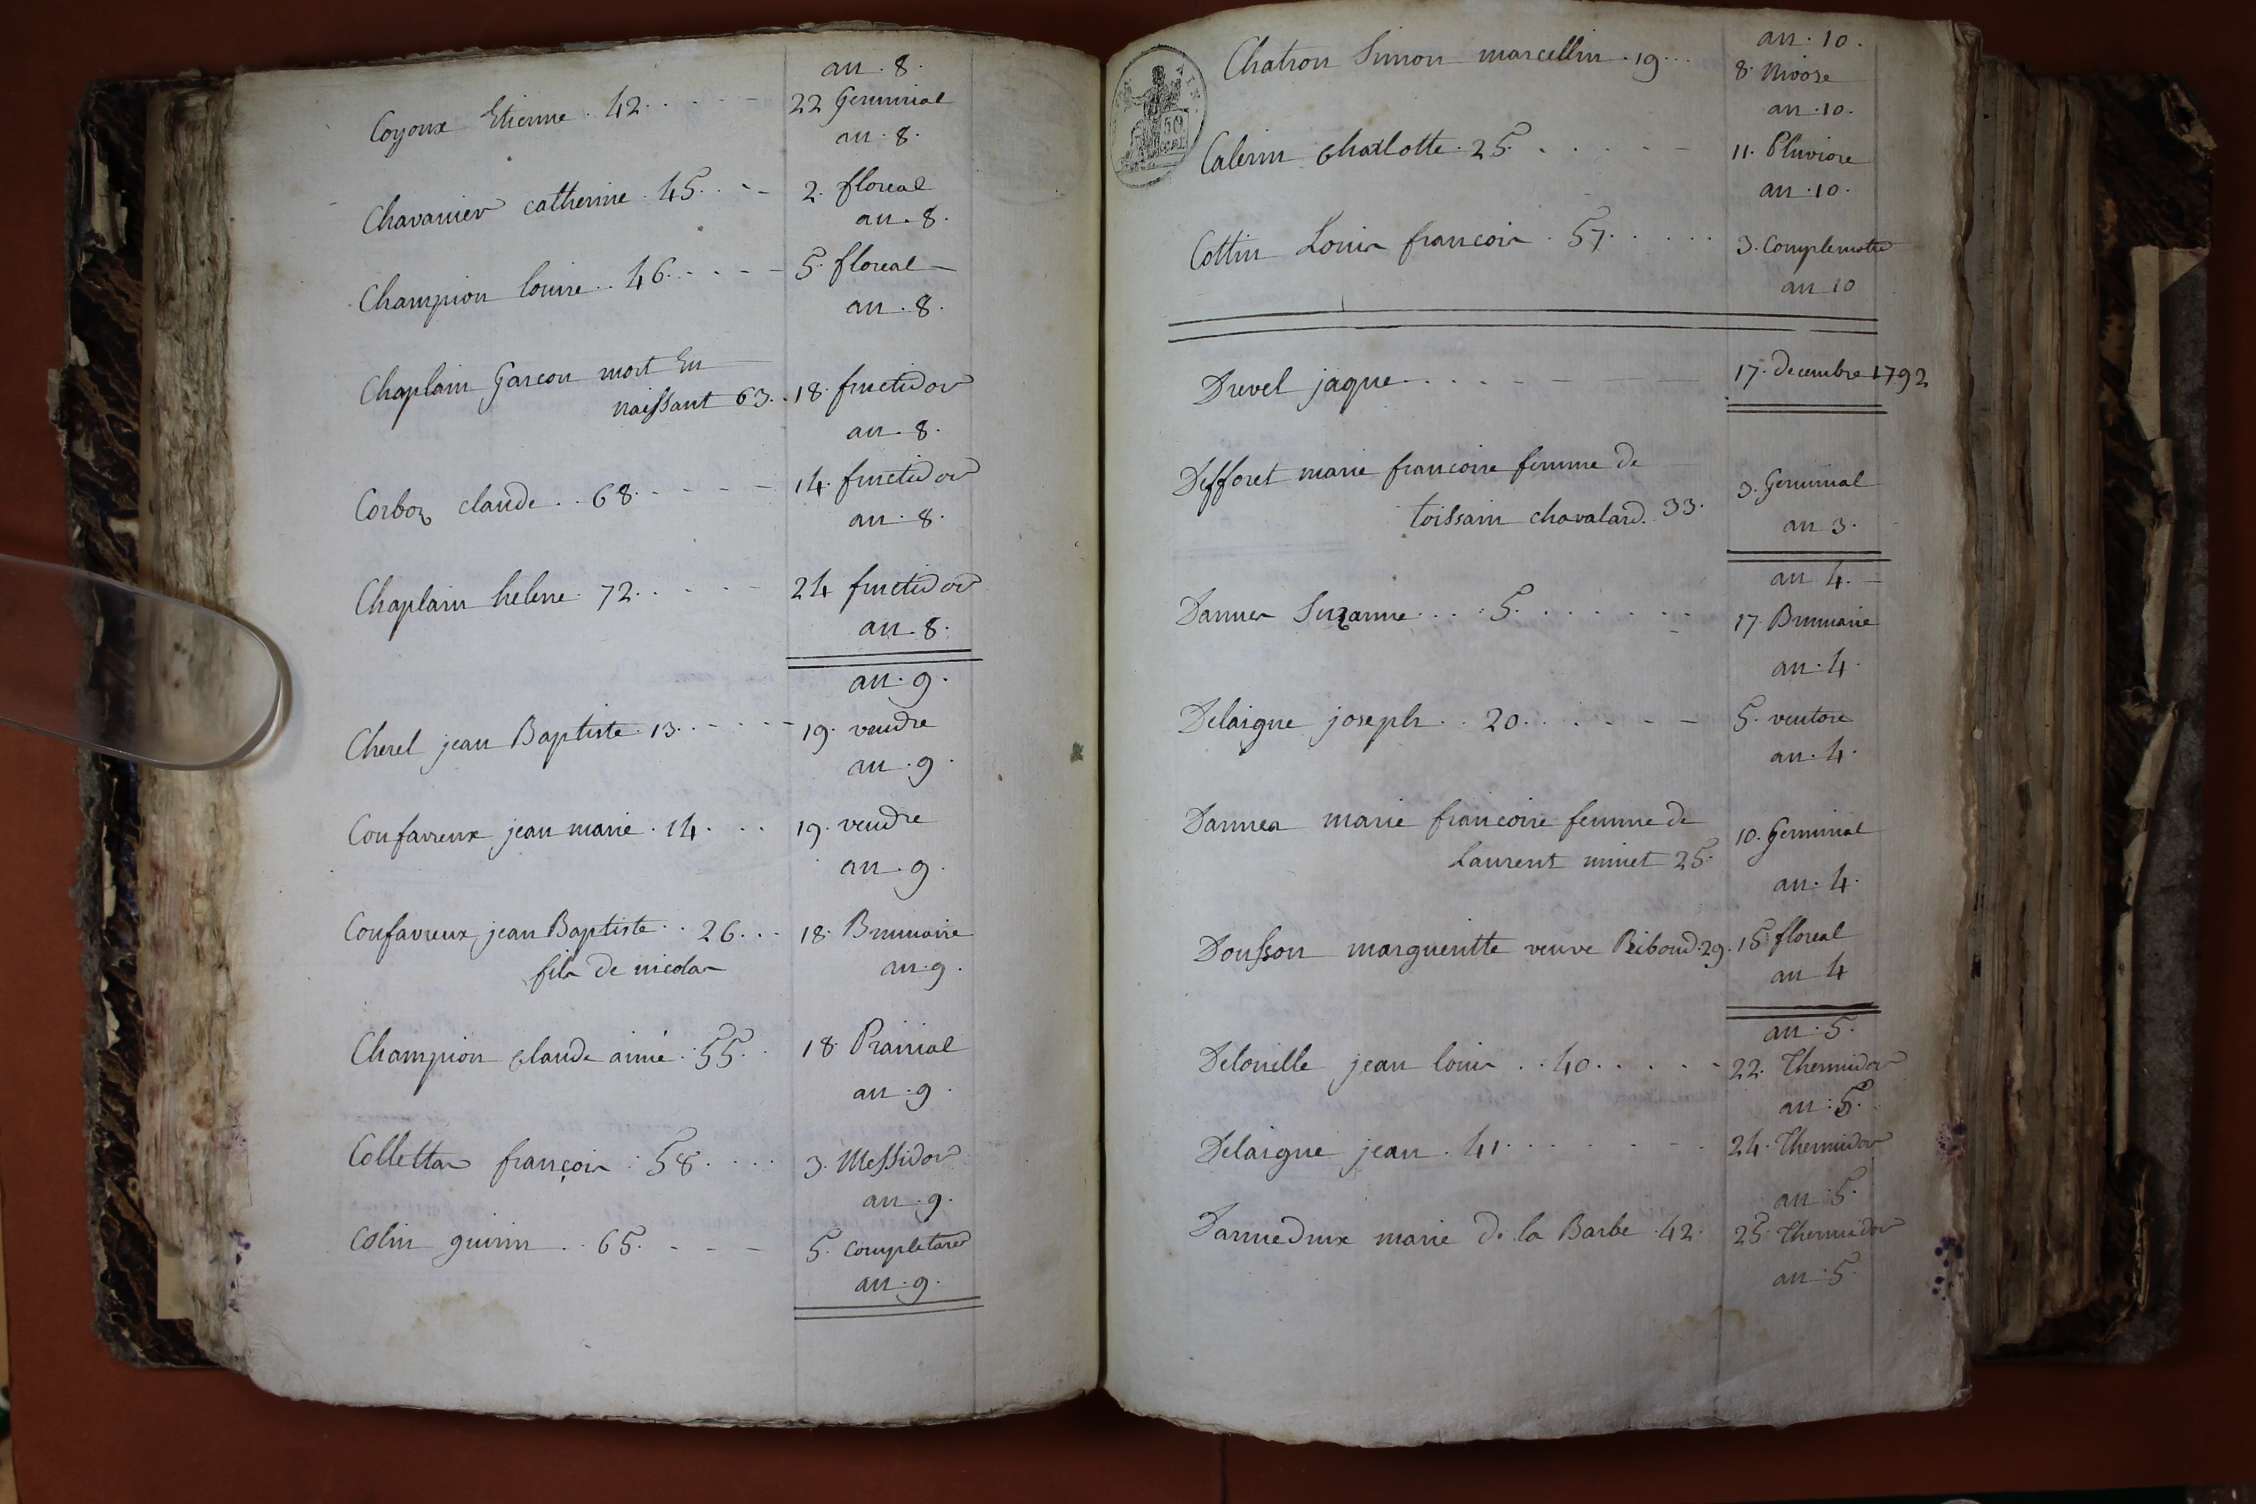 an . 8 .
Coyoux Etienne . 42 . . . . 22 Germinal
an . 8 .
Chavanier catherine . 45 . . . 2 . floreal
an . 8 .
Champion louise . . 46 . . . . 5 . floreal
an . 8 .
Chaplain Garcon mort En
naissant 63 . . 18 . fructidor
an . 8 .
Corboz claude . . 68 . . . . 14 . fructidor
an . 8 .
Chaplain helene . 72 . . . . 24 fructidor
an . 8 .
an . 9 .
Cherel jean Baptiste . 13 . . . . 19 . vendre
an . 9 .
Confavreux jean marie . 14 . . . 19 . vendre
an . 9 .
Confavreux jean Baptiste . . 26 . . . 18 . Brumaire
fils de nicolas an . 9 .
Champion claude aimé . 55 . . 18 Prairial
an . 9 .
Collettas françois . 58 . . . . 3 . Messidor
an . 9 .
Colin guirin . . 65 . . . . 5 . completares
an . 9 .
an . 10 .
Chatron Simon marcellin . 19 . . . 8 . Nivose
an . 10 .
50
Calerin charlotte . 25 . . . . . 11 . Pluviose
an . 10 .
Cottin Louis francois . 57 . . . . . 3 . Complemotre
an 10
Drevel jaque . . . . . 17 . decembre 1792
Defforet marie francoise femme de
toissain chavalard . 33 . 3 . Germinal
an 3 .
an 4 .
Dannes Suzanne . . . . 5 . . . . . . 17 . Brumaire
an . 4 .
Delaigue joseph . . 20 . . . . . 5 . ventose
an . 4 .
Dannes marie francoise femme de
Laurent minet 25 . 10 . Germinal
an . 4 .
Dousson margueritte veuve Reboud . 29 . 15 floreal
an 4
an . 5 .
Delouille jean louis . . 40 . . . . . 22 . Thermidor
an . 5 .
Delaigue jean . 41 . . . . . . 24 . Thermidor
an . 5 .
Dannedrux marie de la Barbe . 42 . 25 Thermidor
an . 5 .